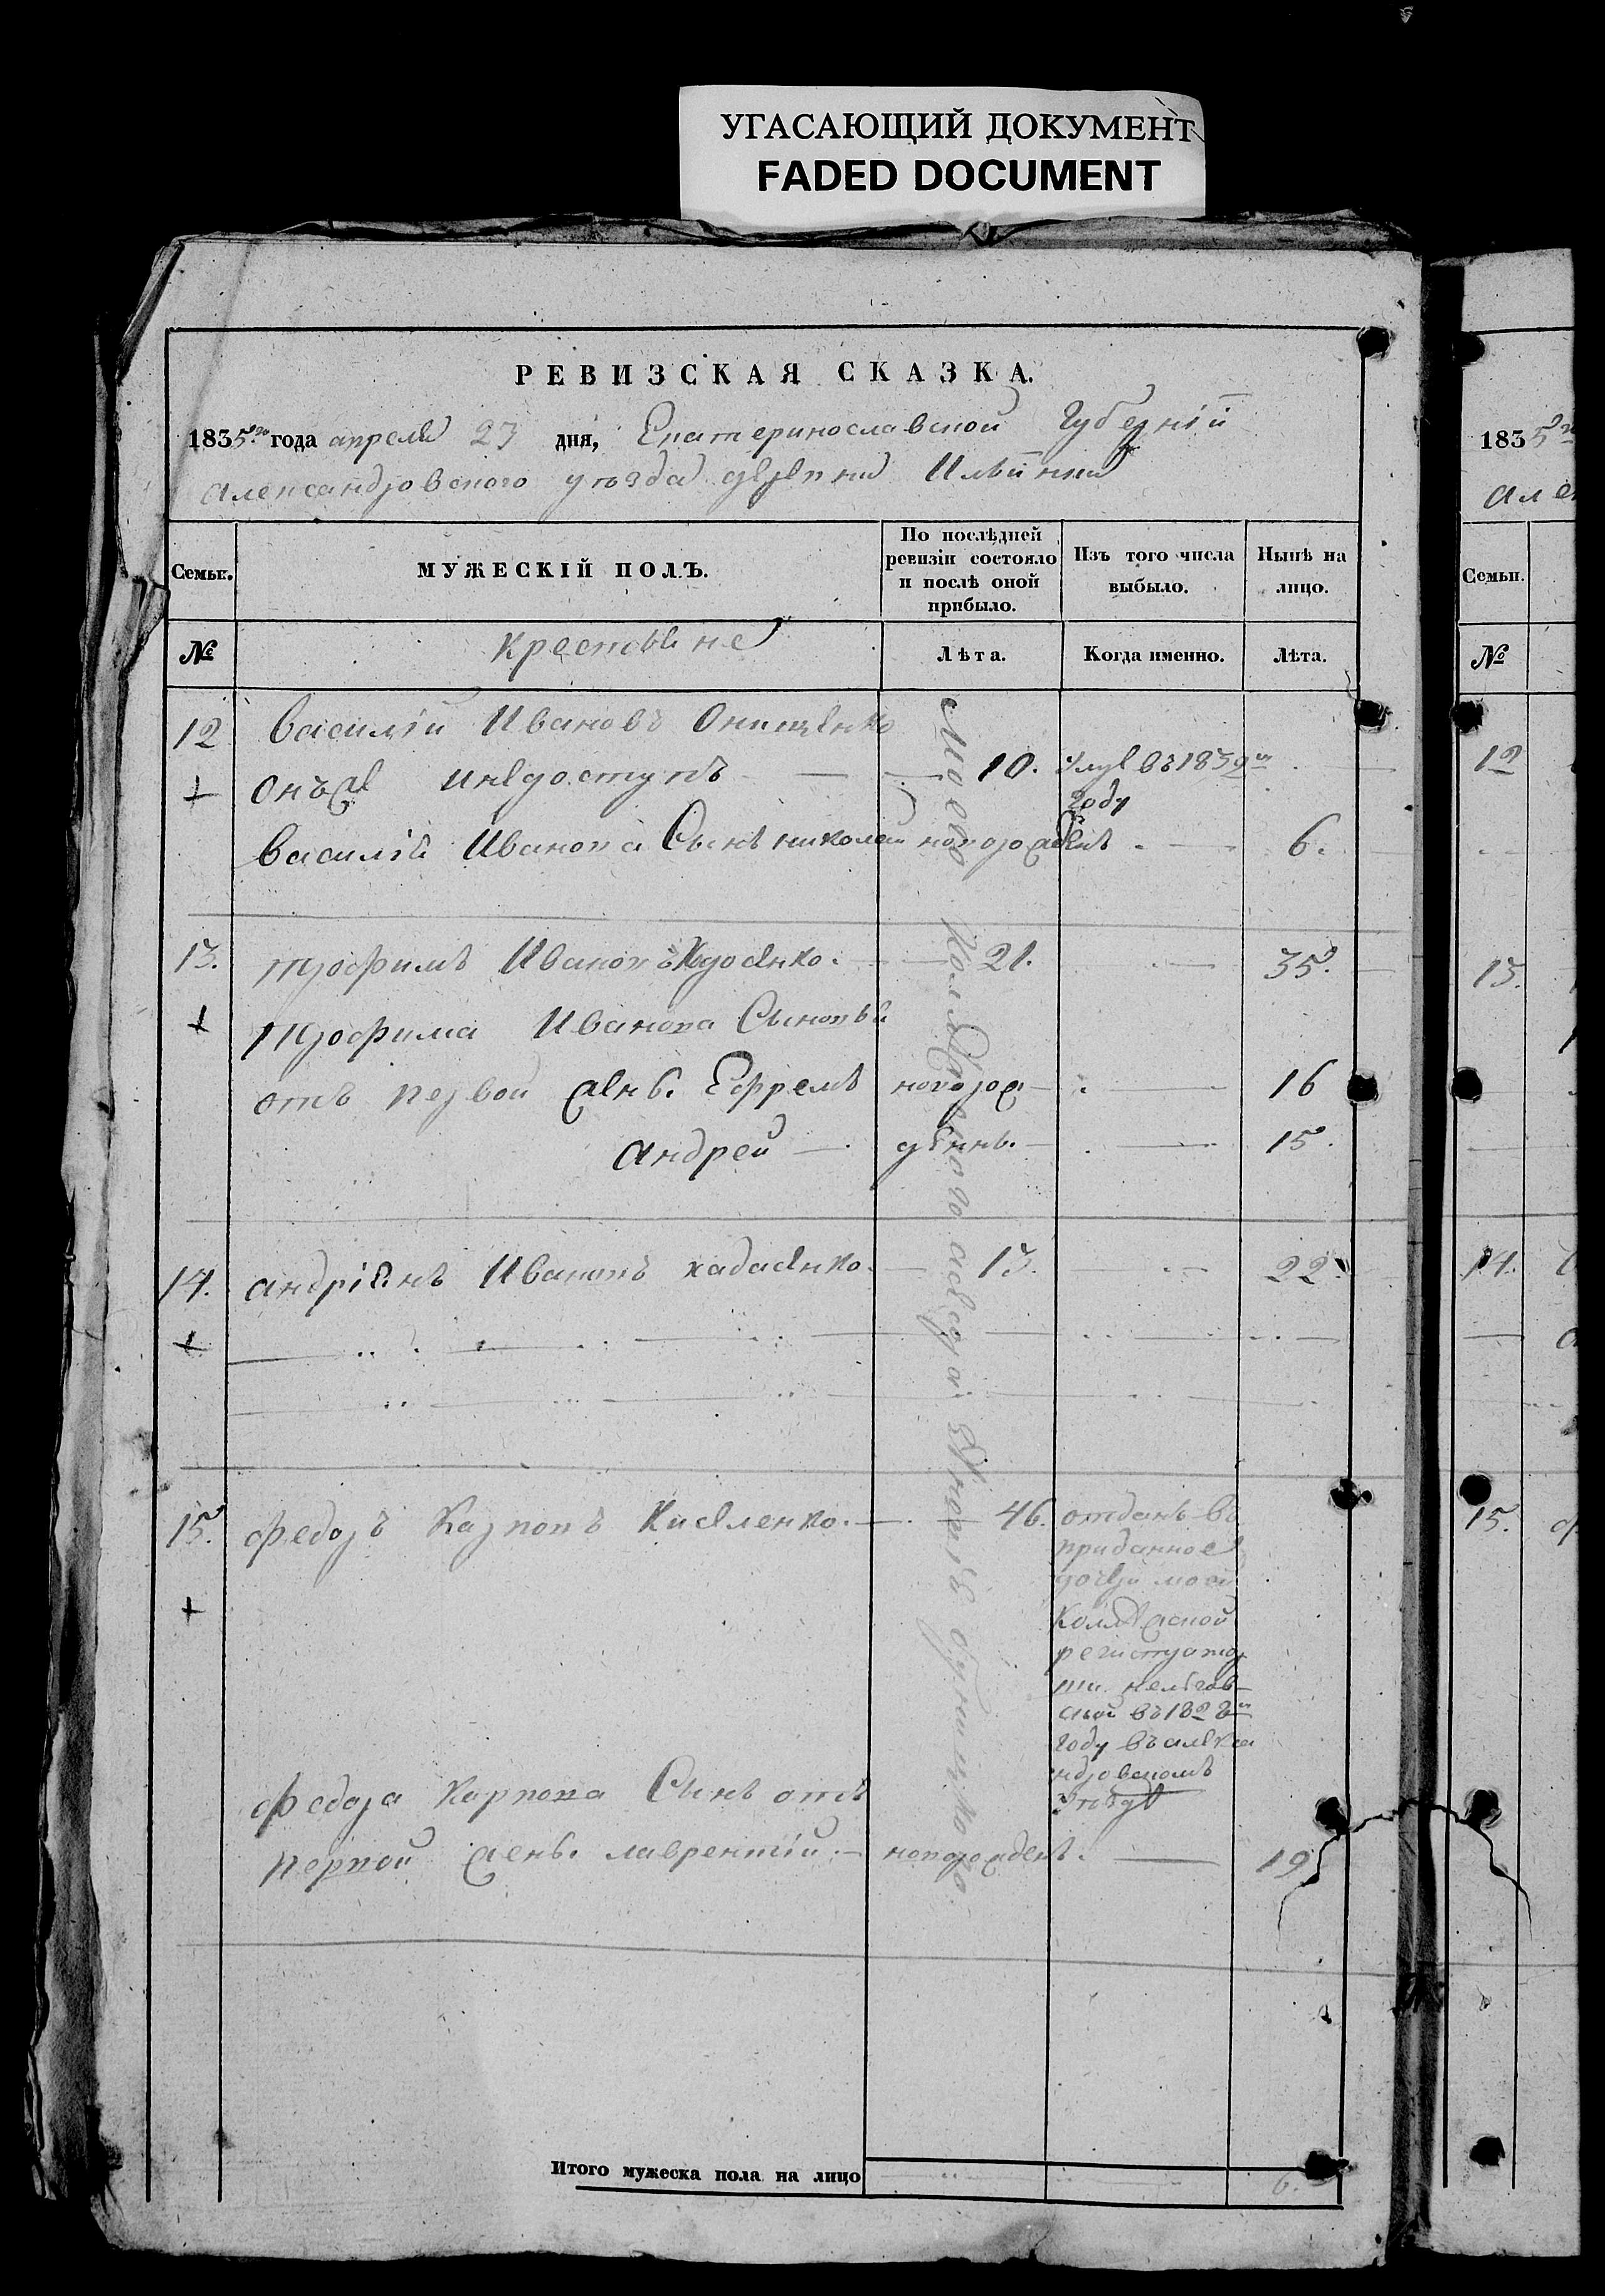 УГАСАЮЩИЙ ДОКУМЕНТ
FADED DOCUMENT
РЕВИЗСКАЯ СКАЗКА.
1835го года апреля 23 дня, Екатеринославской Губерніи
Александровского уѣзда деревни Ильинки
Семьи. МУЖЕСКІЙ ПОЛЪ. По послѣдней ревизіи состояло и послѣ оной прибыло. Изъ того числа выбыло. Нынѣ на лицо.
№ Крестьяне Лѣта. Когда именно. Лѣта.
12 Василій Ивановъ Онищенко
Онъ же 10. въ 183
году
Василія Иванова Сынъ николай новорожденъ 6.
13. Трофимъ Ивановъ 21. 35.
Трофима Иванова Сыновья
отъ первой жены Ефремъ новорож 16
андрей денны 15.
14. андріянъ Ивановъ 13. 22.
15. федоръ Карповъ Киселенко. 46. отданъ въ
приданное
дочери моей
Коллежской
регистратор
ши
въ 1828м
году въ алекса
ндровскомъ
уѣздѣ
федора Карпова Сынъ отъ
первой жены лаврентій новорожденъ. 19
Итого мужеска пола на лицо 6.
1835
Семьи.
№
12
13.
14.
15.